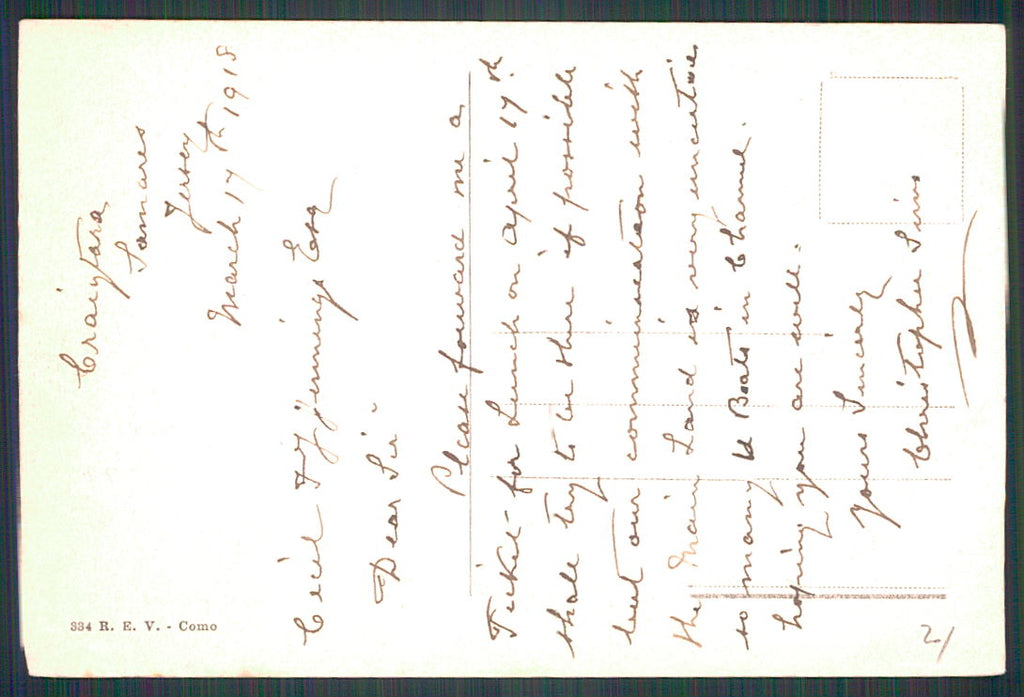 Craigtara
Samares
Jersey
March 17th 1918
Cecil F J Jennings Esq
Dear Sir
Please forward me a
Ticket for Lunch on April 17th
shall try to be there if possible
but our communication with
the Main Land is very uncertain
so many U Boats in Channel.
hoping you are well.
yours Sincerely
Christopher Sims
334 R. E. V. - Como
2/